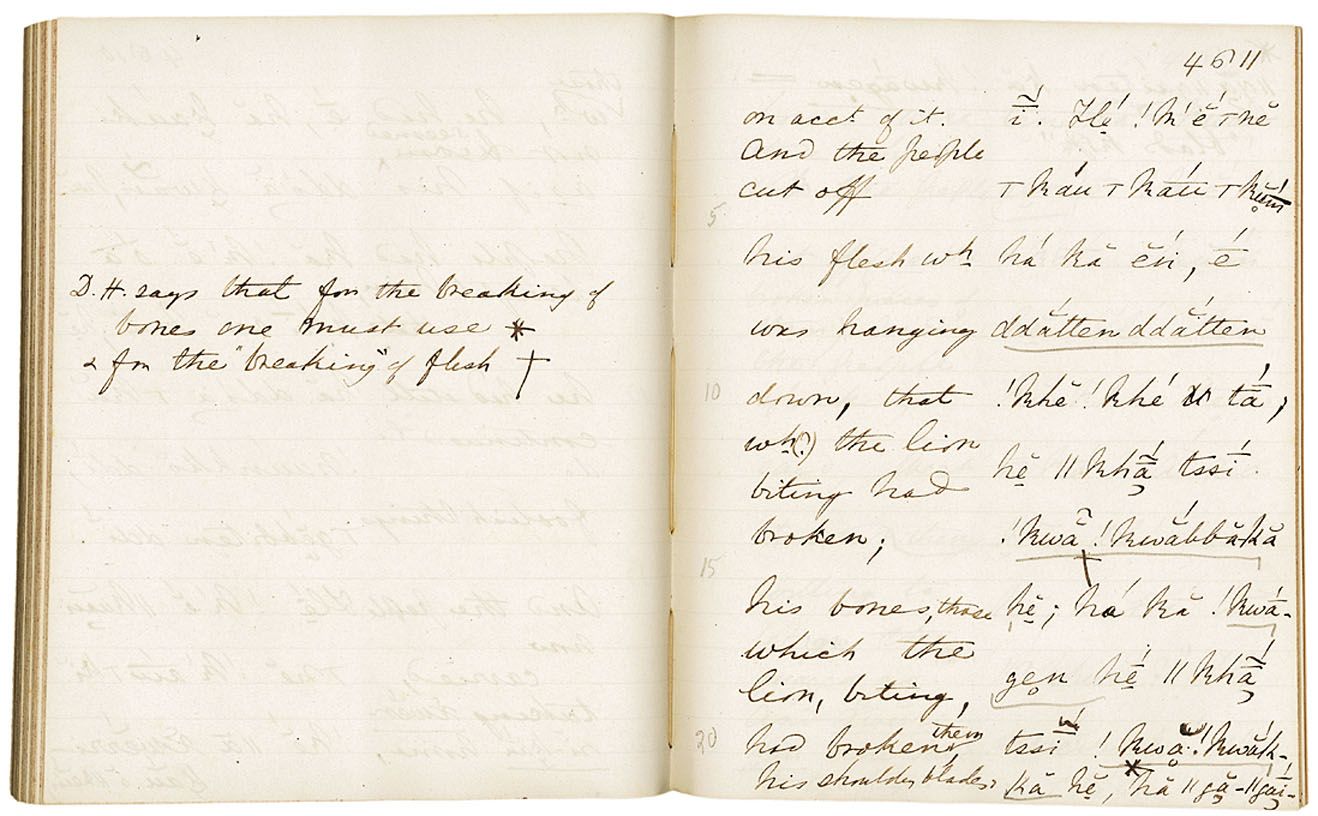 D. H. says that for the breaking of
bones one must use *
& for the "breaking" of flesh †
4611
on acct. of it. ī̃́. Hé̱ !k'é̆ ⊤nĕ
And the people
cut off ⊤káu ⊤káu
5
his flesh wh há kă ĕń, é
was hanging ddắtten ddắtten
10
down, that !khĕ !khé tā́,
wh (?) the lion
hĕ̱ ǁkhā̃́ tssí.
biting had
broken; !kwằ !kwắbbăkă
†
15
his bones, those hĕ̱; há kă !kwá-
which the
lion, biting, gen hĕ̱́ ǁkhā̃́
20
had broken them, tssī́ !kwằ !kwắk-
*
his shoulder blades, kă hĕ̱, hă ǁgă-ǁgā́i-